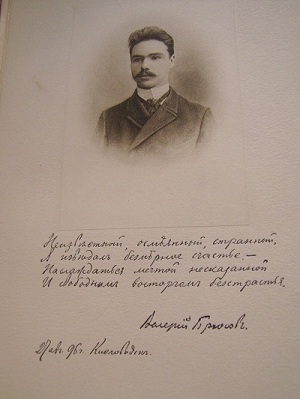 Неизвѣстный, осмѣянный, странный,
Я извѣдалъ безмѣрное счастье, —
Наслаждаться мечтой несказанной
И свободнымъ восторгомъ безстрастья.
Валерій Брюсовъ.
96 г. Кисловодскъ.